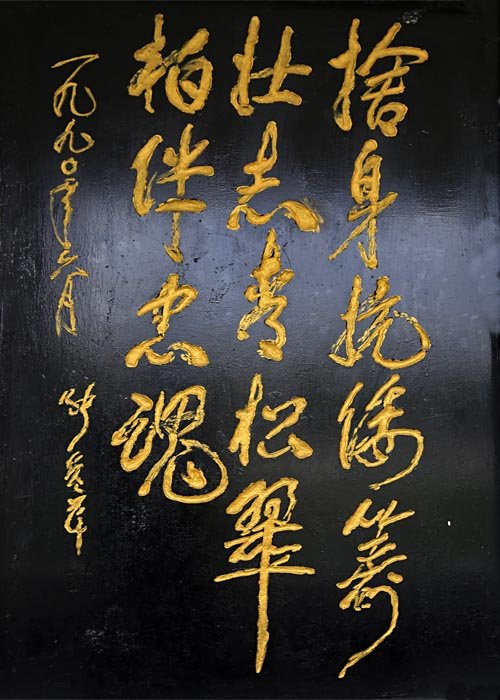 捨身抗倭筹
壮志青松翠
柏伴忠魂
一九九〇年六月